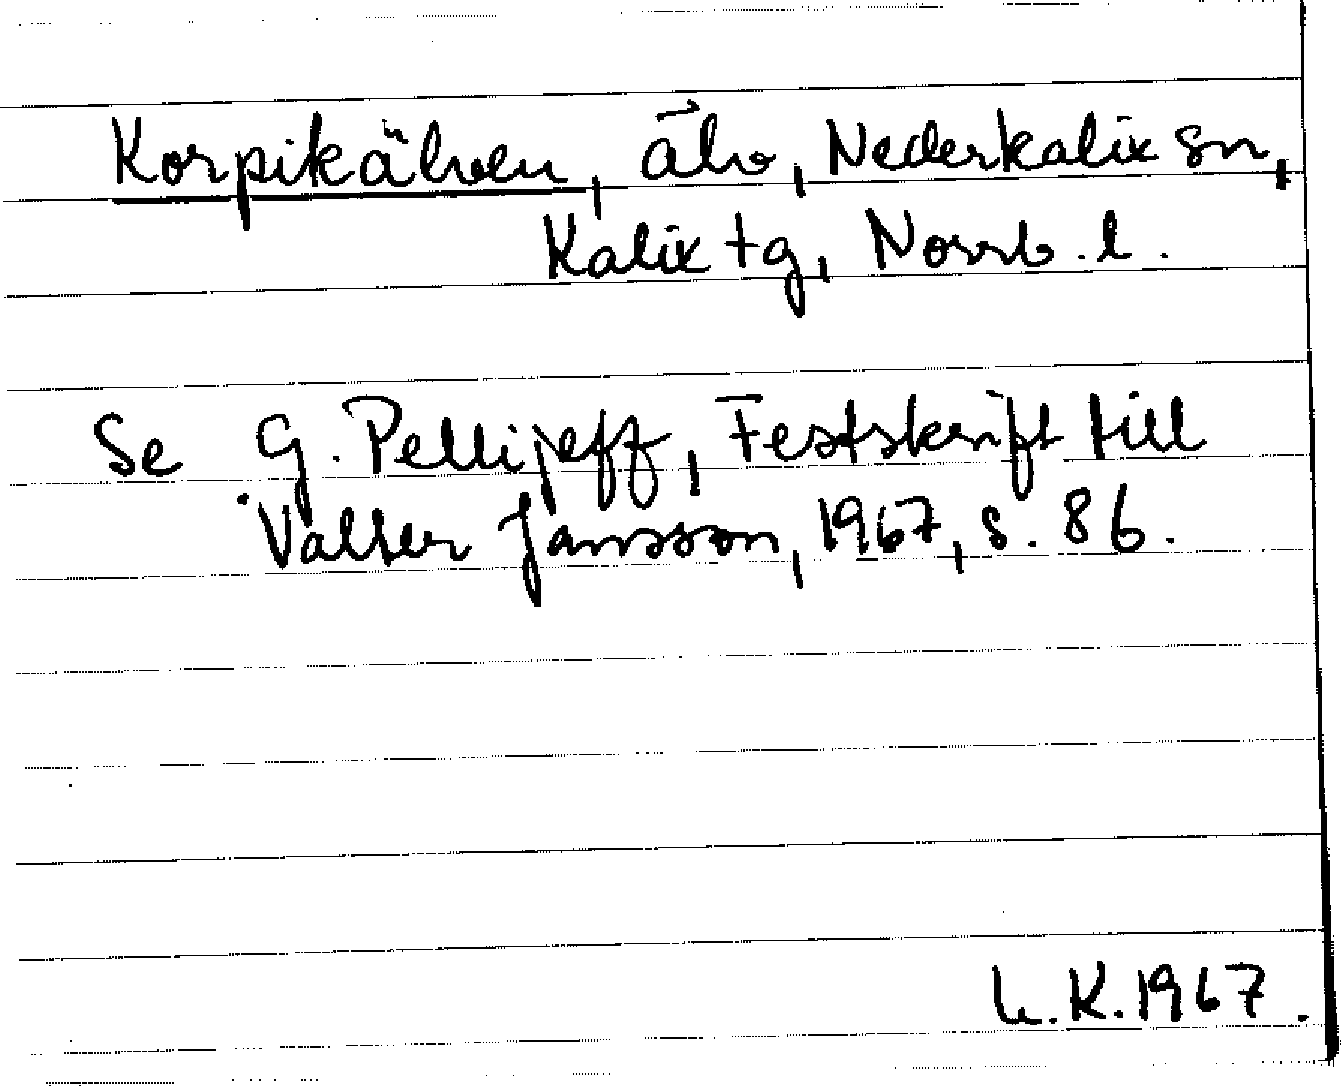 Korpikälven, älv, Nederkalix sn,
Kalix tg, Norrb. l.
Se G. Pellijeff, Festskrift till
Valter Jansson, 1967, s. 86.
L.K. 1967.